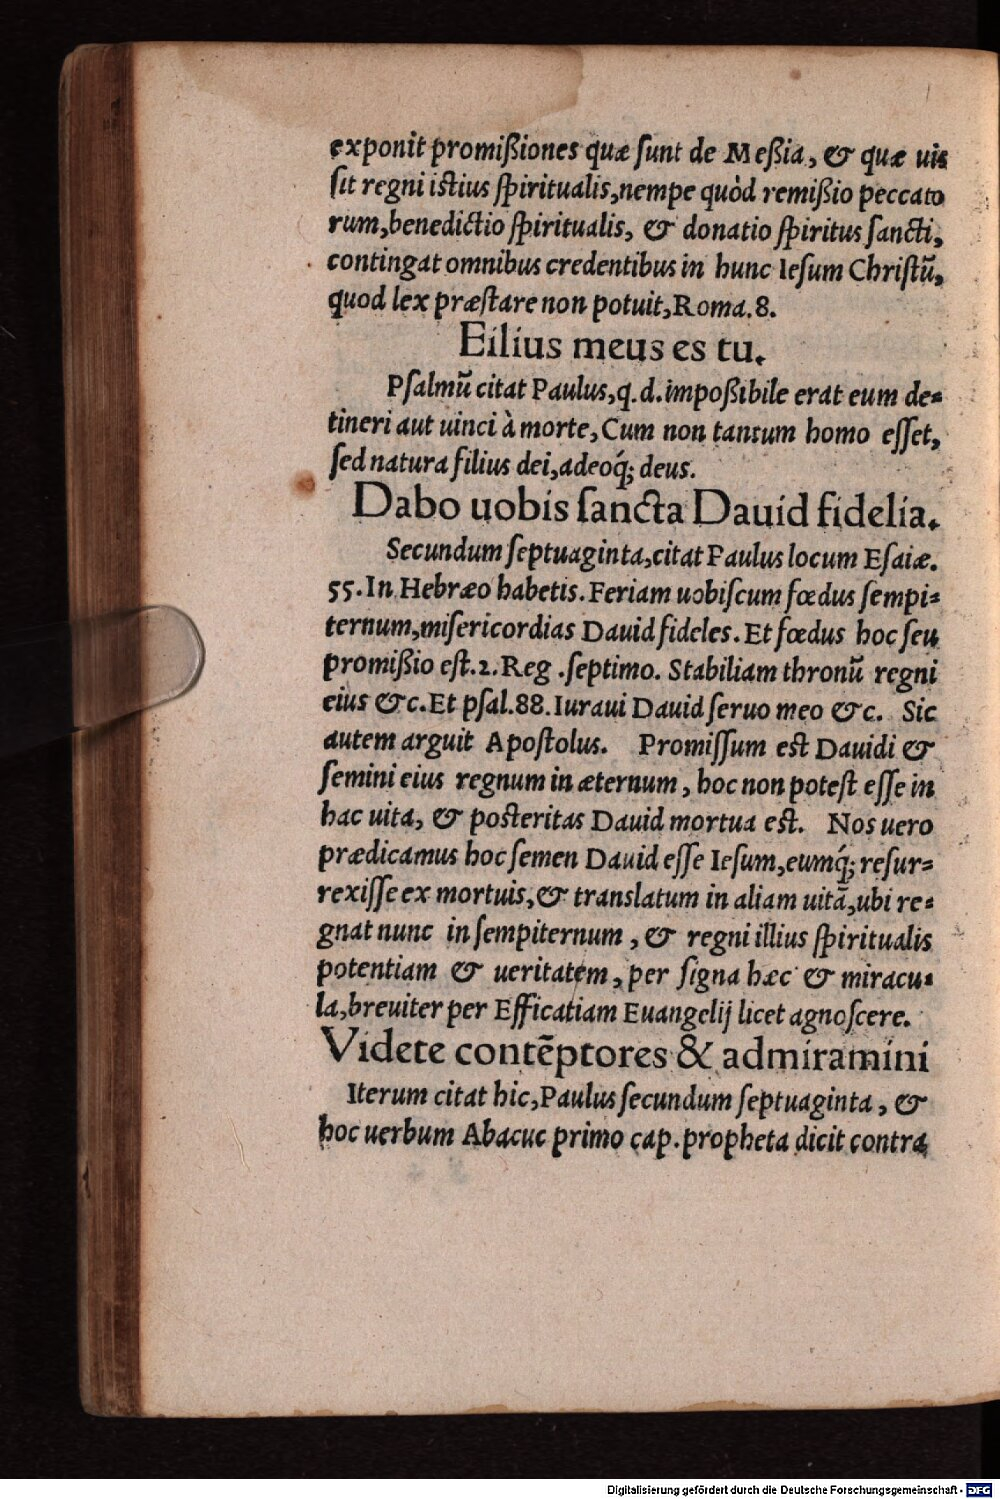 exponit promißiones quæ ſunt de Meßia, & quæ uis
ſit regni iſtius ſpiritualis, nempe quòd remißio peccato
rum, benedictio ſpiritualis, & donatio ſpiritus ſancti,
contingat omnibus credentibus in hunc Ieſum Chriſtū,
quod lex præſtare non potuit, Roma. 8.
Eilius meus es tu.
Pſalmū citat Paulus, q. d. impoßibile erat eum de=
tineri aut uinci à morte, Cum non tantum homo eſſet,
ſed natura filius dei, adeoq́; deus.
Dabo uobis ſancta Dauid fidelia.
Secundum ſeptuaginta, citat Paulus locum Eſaiæ.
55. In Hebræo habetis. Feriam uobiſcum fœdus ſempi=
ternum, miſericordias Dauid fideles. Et fœdus hoc ſeu
promißio eſt. 2. Reg. ſeptimo. Stabiliam thronū regni
eius &c. Et pſal. 88. Iuraui Dauid ſeruo meo &c. Sic
autem arguit Apoſtolus. Promiſſum eſt Dauidi &
ſemini eius regnum in æternum, hoc non poteſt eſſe in
hac uita, & poſteritas Dauid mortua eſt. Nos uero
prædicamus hoc ſemen Dauid eſſe Ieſum, eumq́; reſur=
rexiſſe ex mortuis, & translatum in aliam uitā, ubi re=
gnat nunc in ſempiternum, & regni illius ſpiritualis
potentiam & ueritatem, per ſigna hæc & miracu=
la, breuiter per Efficatiam Euangelij licet agnoſcere.
Videte contēptores & admiramini
Iterum citat hic, Paulus ſecundum ſeptuaginta, &
hoc uerbum Abacuc primo cap. propheta dicit contra
Digitalisierung gefördert durch die Deutsche Forschungsgemeinschaft - DFG